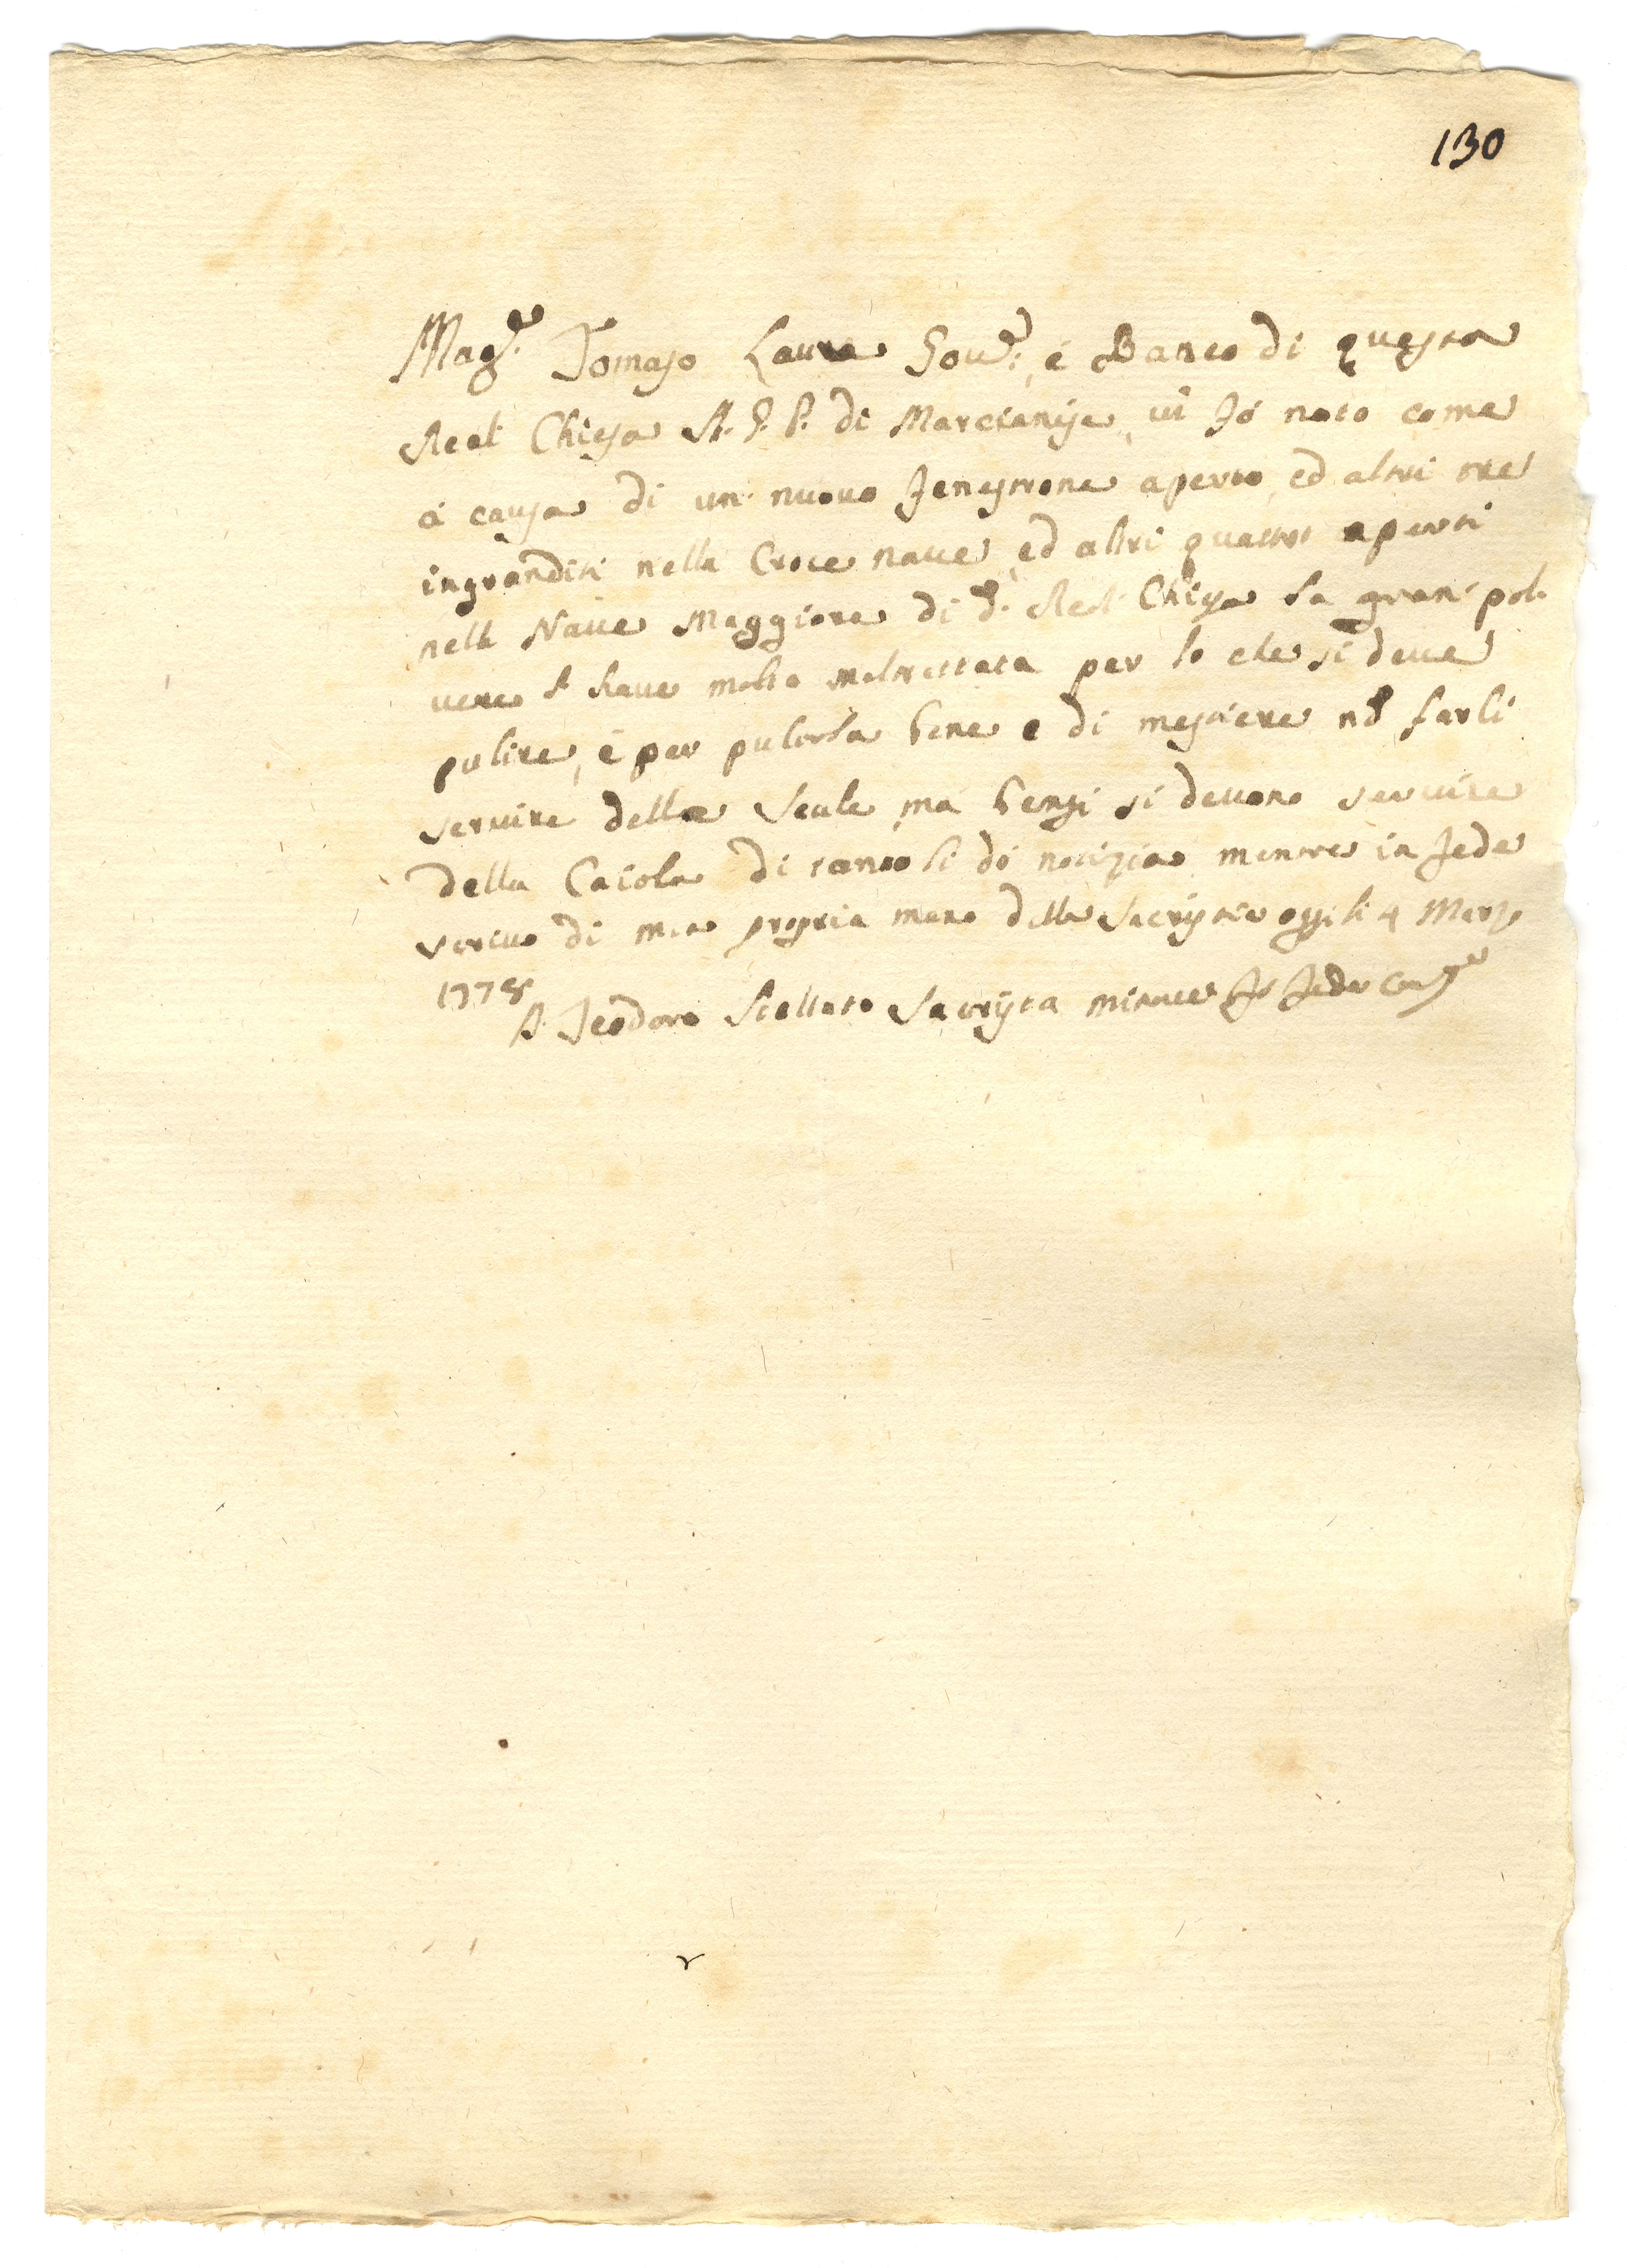 130
Mag.co Tomaso Laura Gov.e, é Banco di questa
Real Chiesa A. G. P. di Marcianise, vi fò noto come
á causa di un nuovo fenestrone aperto, ed altri tre
ingranditi nella Croce nave, ed altri quattro aperti
nella Nave Maggiore di d.a Real Chiesa la gran pol-
vere l' have molto maltrattata per lo che si deve
pulire, é per pulirla bene e di mestiere nō farli
servire delle scale, ma bensi si devono servire
della Caiola di tanto li dò notizia mentre in fede
scrivo di mia propria mano della Sacristia oggi li 4 Marzo
1778
D. Teodoro Scellato Sacrista minore fò fede come